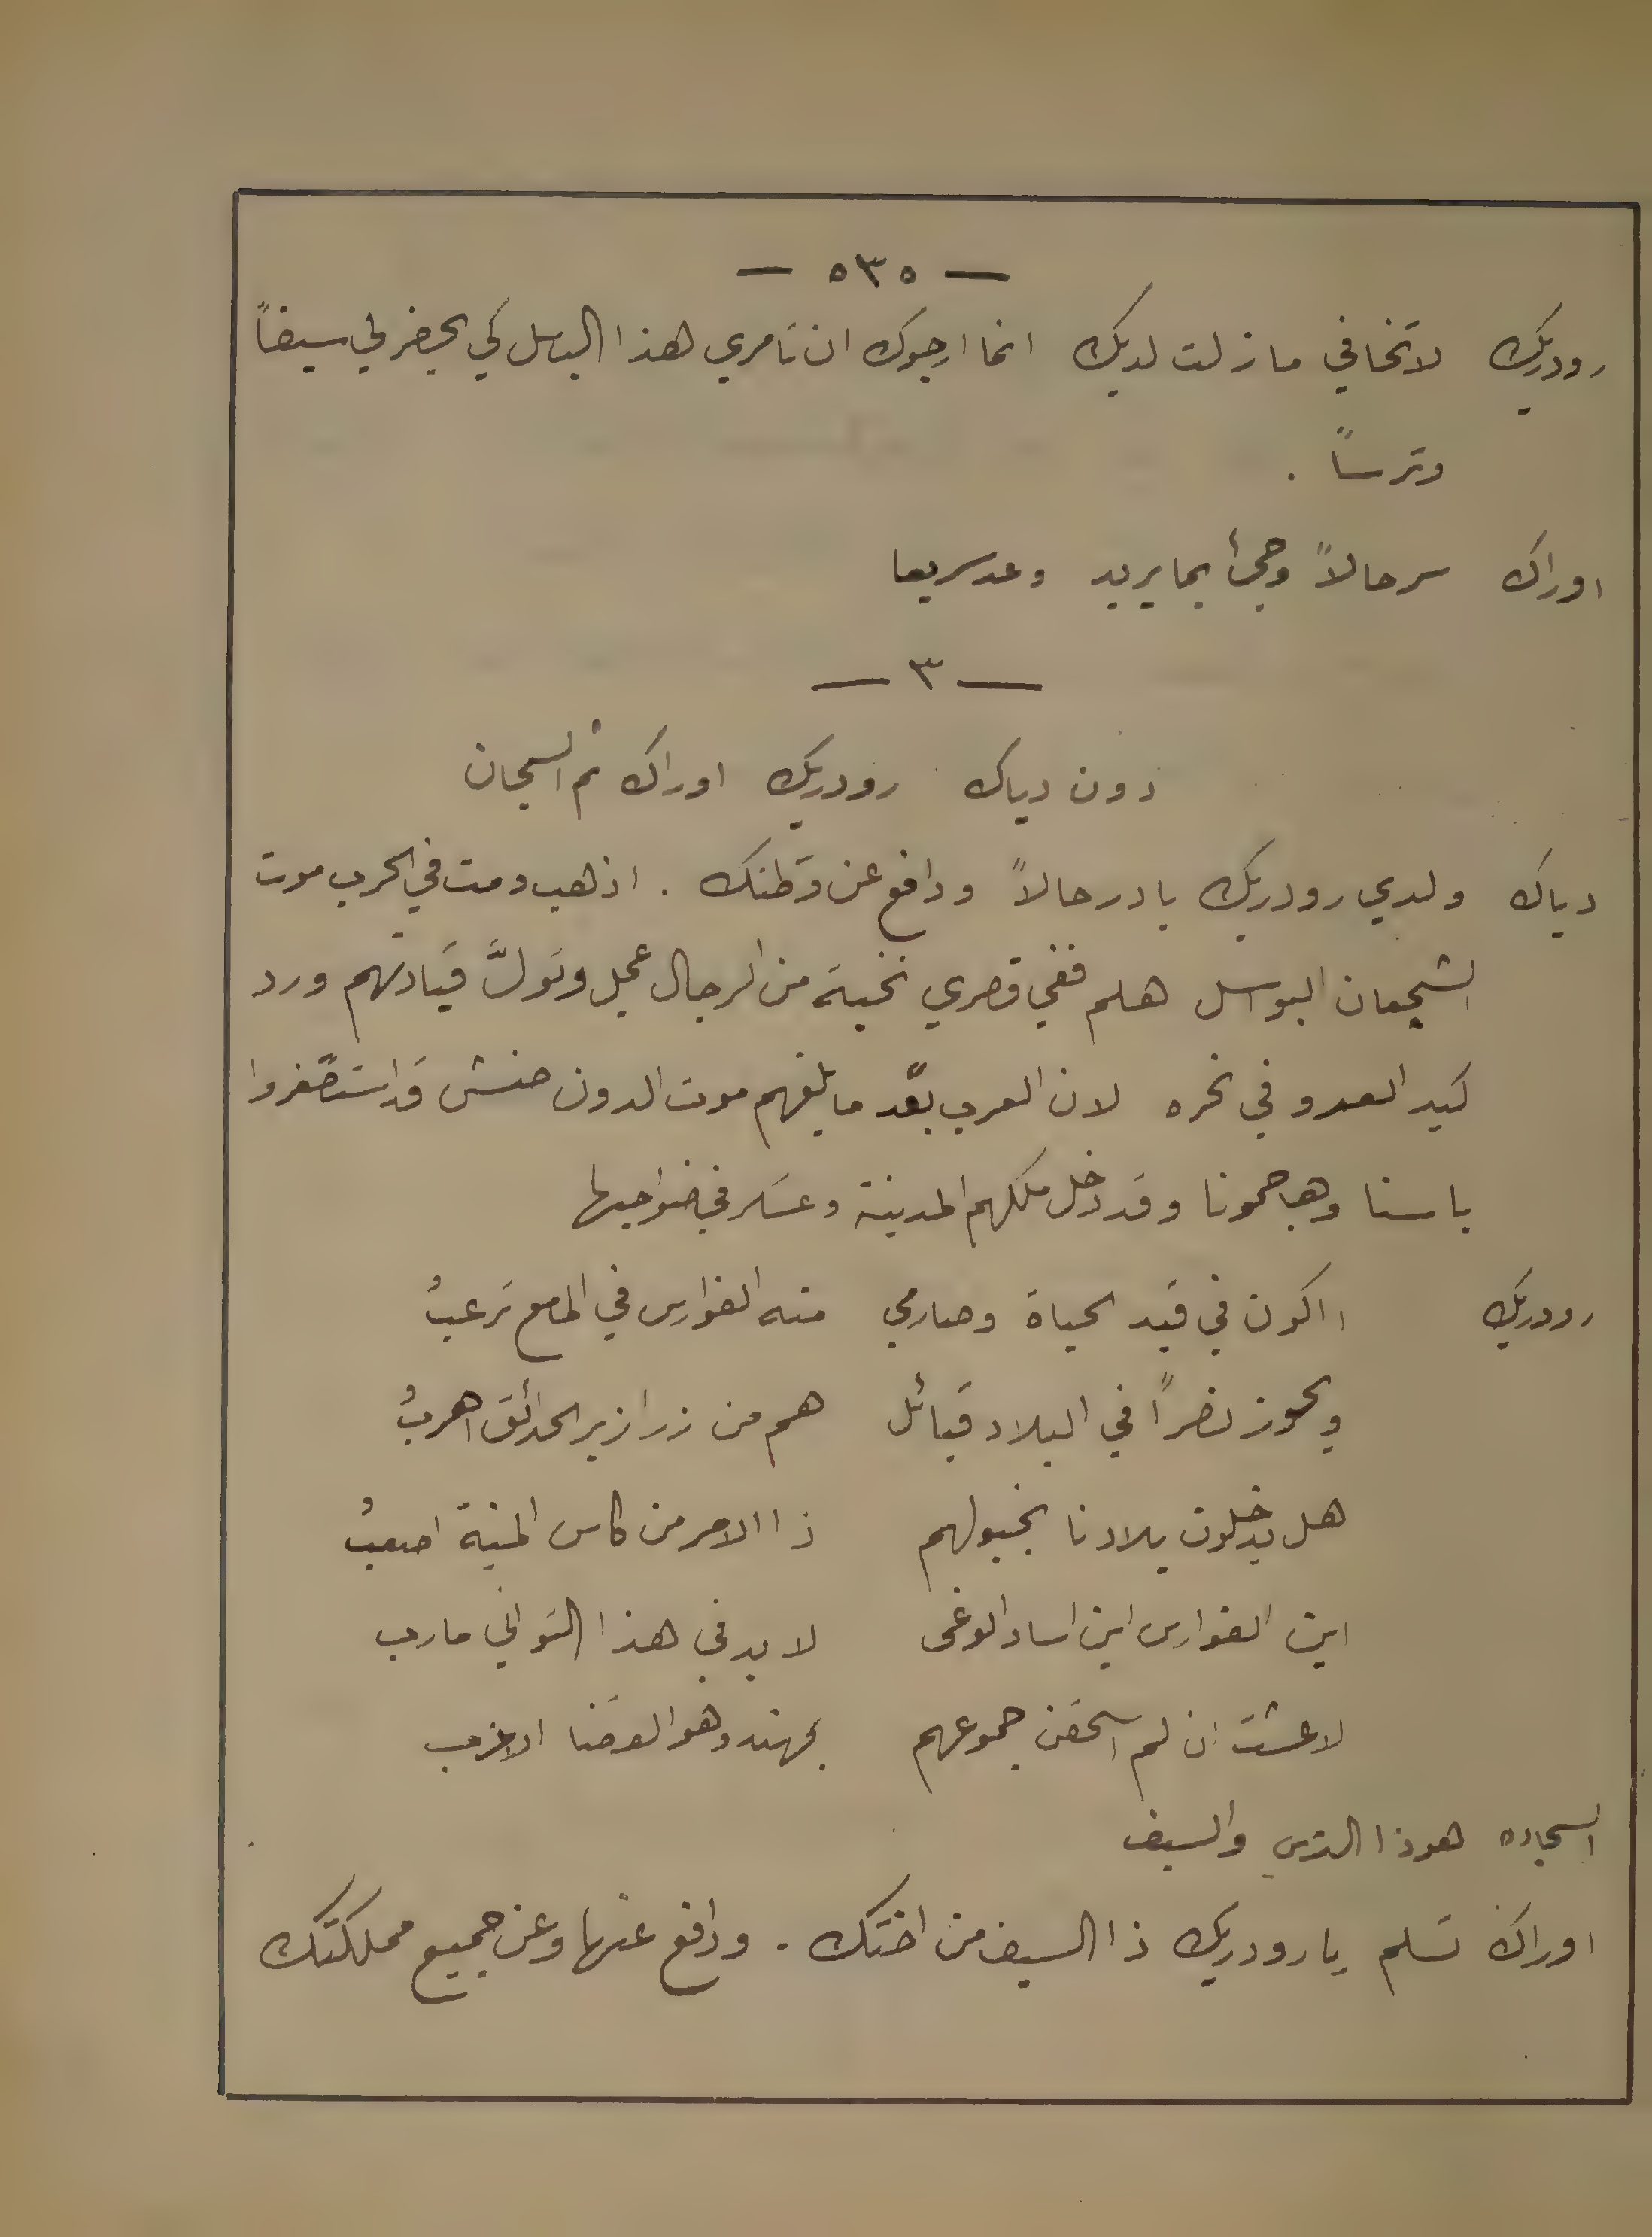 — ٥٣٥ —
رودريك لا تخافي ما زلت لديك انما ارجوك ان تامري هذا الباسل كي يحضر لي سيفاً
وترساً .
اوراك سر حالاً وجئ بما يريد وعد سريعا
— ٣ —
دون دياك رودريك اوراك ثم السجان
دياك ولدي رودريك بادر حالاً ودافع عن وطنك . اذهب ومت في الحرب موت
الشجعان البواسل هلم ففي قصري نخبة من الرجال عجل وتولَّ قيادتهم ورد
كيد العدو في نحره لان العرب بعد ما بلغهم موت الدون صنش قد استصغروا
باسنا وهاجمونا وقد دخل ملكهم المدينة وعسكر في ضواحيها
رودريك ااكون في قيد الحياة وصارمي منه الفوارس في المامع ترعبُ
ويحوز نصراً في البلاد قبائل هم من زرازير الحدائق اهربُ
هل يدخلون بلادنا بخيولهم ذا الامر من كاس المنية اصعبُ
اين الفوارس اين اساد الوغى لا بد في هذا التواني مارب
لا عشت ان لم اسحقن جموعهم بمهند وهو القضا الاغرب
السجان هوذا الترس والسيف
اوراك تسلم يا رودريك ذا السيف من اختك . ودافع عنها وعن جميع مملكتك